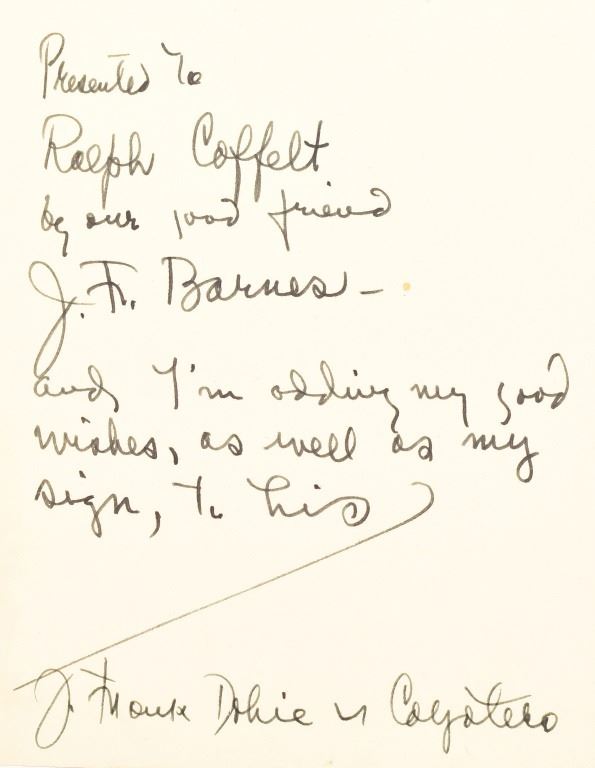 Presented To
Ralph Coffelt
by our good friend
J. F. Barnes –
and, I'm adding my good
wishes, as well as my
sign, to his
J. Frank Dobie un Coyotero